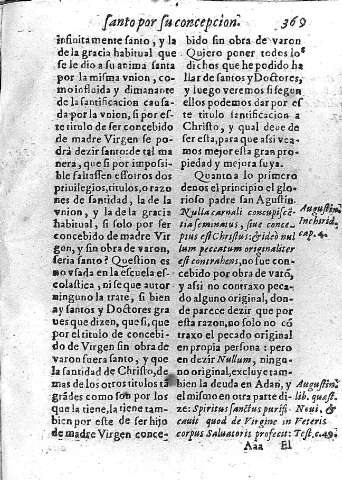 santo por su concepcion. 369
infinitamente santo, y la
de la gracia habitual que
se le dio a su anima santa
por la misma vnion, co-
mo influida y dimanante
de la santificacion causa-
da por la vnion, si por es-
te titulo de ser concebido
de madre Virgen se po
dra dezir santo: de tal ma
nera, que si por imposi-
ble faltassen essotros dos
priuilegios, titulos, o razo
nes de santidad, la de la
vnion, y la de la gracia
habitual, si solo por ser
concebido de madre Vir
gen, y sin obra de varon,
seria santo? Question es
no vsada en la escuela es-
colastica, ni se que autor
ninguno la trate, si bien
ay santos y Doctores gra
ues que dizen, que si, que
por el titulo de concebi-
do de Virgen sin obra de
varon fuera santo, y que
la santidad de Christo, de
mas de los otros titulos tā
grādes como son por los
que la tiene, la tiene tam-
bien por este de ser hijo
de madre Virgen conce-
bido sin obra de varon
Quiero poner todos los
dichos que he podido ha
llar de santos y Doctores,
y luego veremos si segun
ellos podemos dar por es
te titulo santificacion a
Christo, y qual deue de
ser esta, para que assi vea-
mos mejor esta gran pro-
piedad y mejora suya.
Quanto a lo primero
denos el principio el glo-
rioso padre san Agustin.
Nulla carnali concupiscē-
tia seminatus, siue conce-
ptus est Christus: & ideò nul
lum peccatum originaliter
est contrahens, no fue con-
cebido por obra de varō,
y assi no contraxo peca-
do alguno original, don-
de parece dezir que por
esta razon, no solo no cō
traxo el pecado original
en propia persona: pero
en dezir Nullum, ningu-
no original, excluye tam-
bien la deuda en Adan, y
el mismo en otra parte di-
ze: Spiritus sanctus purifi-
cauit quod de Virgine in
corpus Saluatoris profecit:
Augustin.
Inchirid.
cap. 4.
Augustin.
lib. quæst.
Noui, &
Veteris
Test. c. 49.
Aaa El